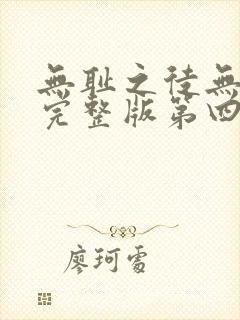 無耻之徒無
完整版第四
廖珂雪